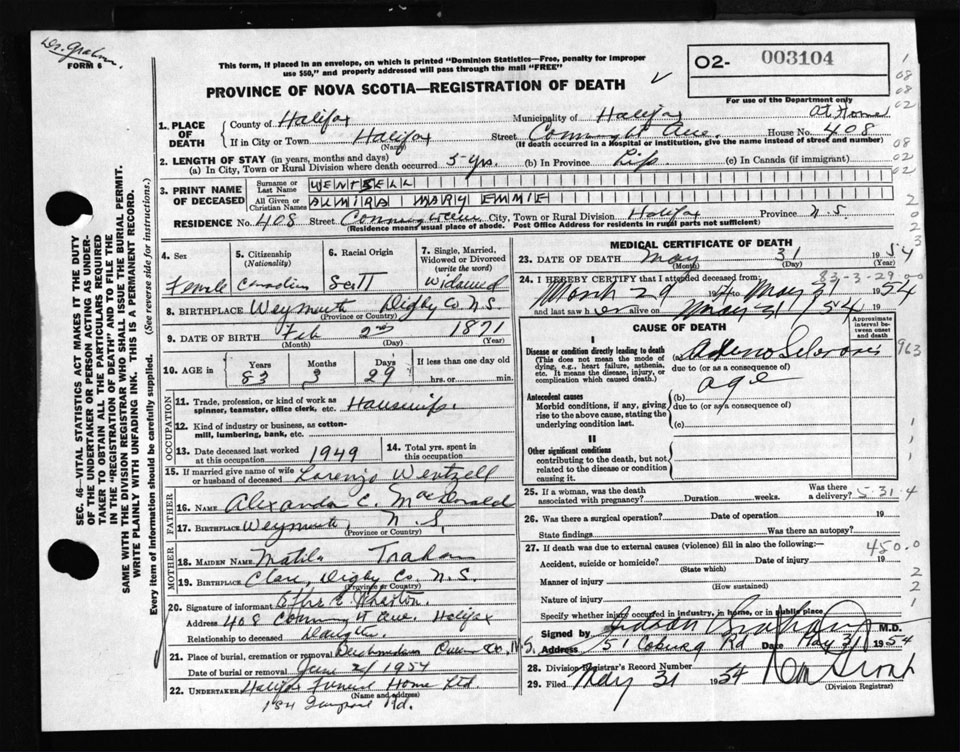 Dr. Graham.
FORM 6
This form, if placed in an envelope, on which is printed "Dominion Statistics—Free, penalty for improper
use $50," and properly addressed will pass through the mail "FREE"
O2- 003104
PROVINCE OF NOVA SCOTIA—REGISTRATION OF DEATH
For use of the Department only
1. PLACE OF DEATH
County of Halifax Municipality of Halifax At Home
If in City or Town Halifax Street Connaught Ave. House No. 408
(Name) (If death occurred in a Hospital or institution, give the name instead of street and number)
2. LENGTH OF STAY (in years, months and days)
(a) In City, Town or Rural Division where death occurred 5 yrs. (b) In Province Life (c) In Canada (if immigrant)
3. PRINT NAME OF DECEASED
Surname or Last Name WENTZELL
All Given or Christian Names ALMIRA MARY EMMIE
RESIDENCE No. 408 Street Connaught Ave City, Town or Rural Division Halifax Province N.S.
(Residence means usual place of abode. Post Office Address for residents in rural parts not sufficient)
4. Sex Female
5. Citizenship (Nationality) Canadian
6. Racial Origin Scott
7. Single, Married, Widowed or Divorced (write the word) Widowed
8. BIRTHPLACE Weymouth Digby Co N.S.
(Province or Country)
9. DATE OF BIRTH Feb 2nd 1871
(Month) (Day) (Year)
10. AGE in Years 83 Months 3 Days 29 If less than one day old hrs. or min.
OCCUPATION
11. Trade, profession, or kind of work as spinner, teamster, office clerk, etc. Housewife.
12. Kind of industry or business, as cotton-mill, lumbering, bank, etc.
13. Date deceased last worked at this occupation 1949
14. Total yrs. spent in this occupation
15. If married give name of wife or husband of deceased Lorenzo Wentzell
FATHER
16. Name Alexander C. MacDonald
17. Birthplace Weymouth, N.S.
(Province or Country)
MOTHER
18. MAIDEN NAME Matilda Trahan
19. BIRTHPLACE Clare, Digby Co. N.S.
(Province or Country)
20. Signature of informant
Address 408 Connaught Ave. Halifax
Relationship to deceased Daughter.
21. Place of burial, cremation or removal Queens Co. N.S.
Date of burial or removal June 2/1954
22. UNDERTAKER Halifax Funeral Home Ltd.
(Name and address)
Rd.
MEDICAL CERTIFICATE OF DEATH
23. DATE OF DEATH May 31 1954
(Month) (Day) (Year)
83-3-29
24. I HEREBY CERTIFY that I attended deceased from:
March 29 1954 to May 31 1954
and last saw her alive on May 31 1954
CAUSE OF DEATH
Approximate interval between onset and death
I
Disease or condition directly leading to death
(This does not mean the mode of dying, e.g., heart failure, asthenia, etc. It means the disease, injury, or complication which caused death.)
(a) Arteriosclerosis
due to (or as a consequence of)
Antecedent causes
Morbid conditions, if any, giving rise to the above cause, stating the underlying condition last.
(b) age
due to (or as a consequence of)
(c)
II
Other significant conditions
contributing to the death, but not related to the disease or condition causing it.
25. If a woman, was the death associated with pregnancy? Duration weeks. Was there a delivery?
5-31-4
26. Was there a surgical operation? Date of operation 19
State findings Was there an autopsy?
27. If death was due to external causes (violence) fill in also the following:—
450.0
Accident, suicide or homicide? Date of injury 19
(State which)
Manner of injury
(How sustained)
Nature of injury
Specify whether injury occurred in industry, in home, or in public place
Signed by Graham M.D.
Address 51 Coburg Rd Date May 31 1954
28. Division Registrar's Record Number
29. Filed May 31 1954
(Division Registrar)
SEC. 46—VITAL STATISTICS ACT MAKES IT THE DUTY
OF THE UNDERTAKER OR PERSON ACTING AS UNDER-
TAKER TO OBTAIN ALL THE PARTICULARS REQUIRED
IN THE "REGISTRATION OF DEATH" AND TO FILE THE
SAME WITH THE DIVISION REGISTRAR WHO SHALL ISSUE THE BURIAL PERMIT.
WRITE PLAINLY WITH UNFADING INK. THIS IS A PERMANENT RECORD.
Every item of information should be carefully supplied. (See reverse side for instructions.)